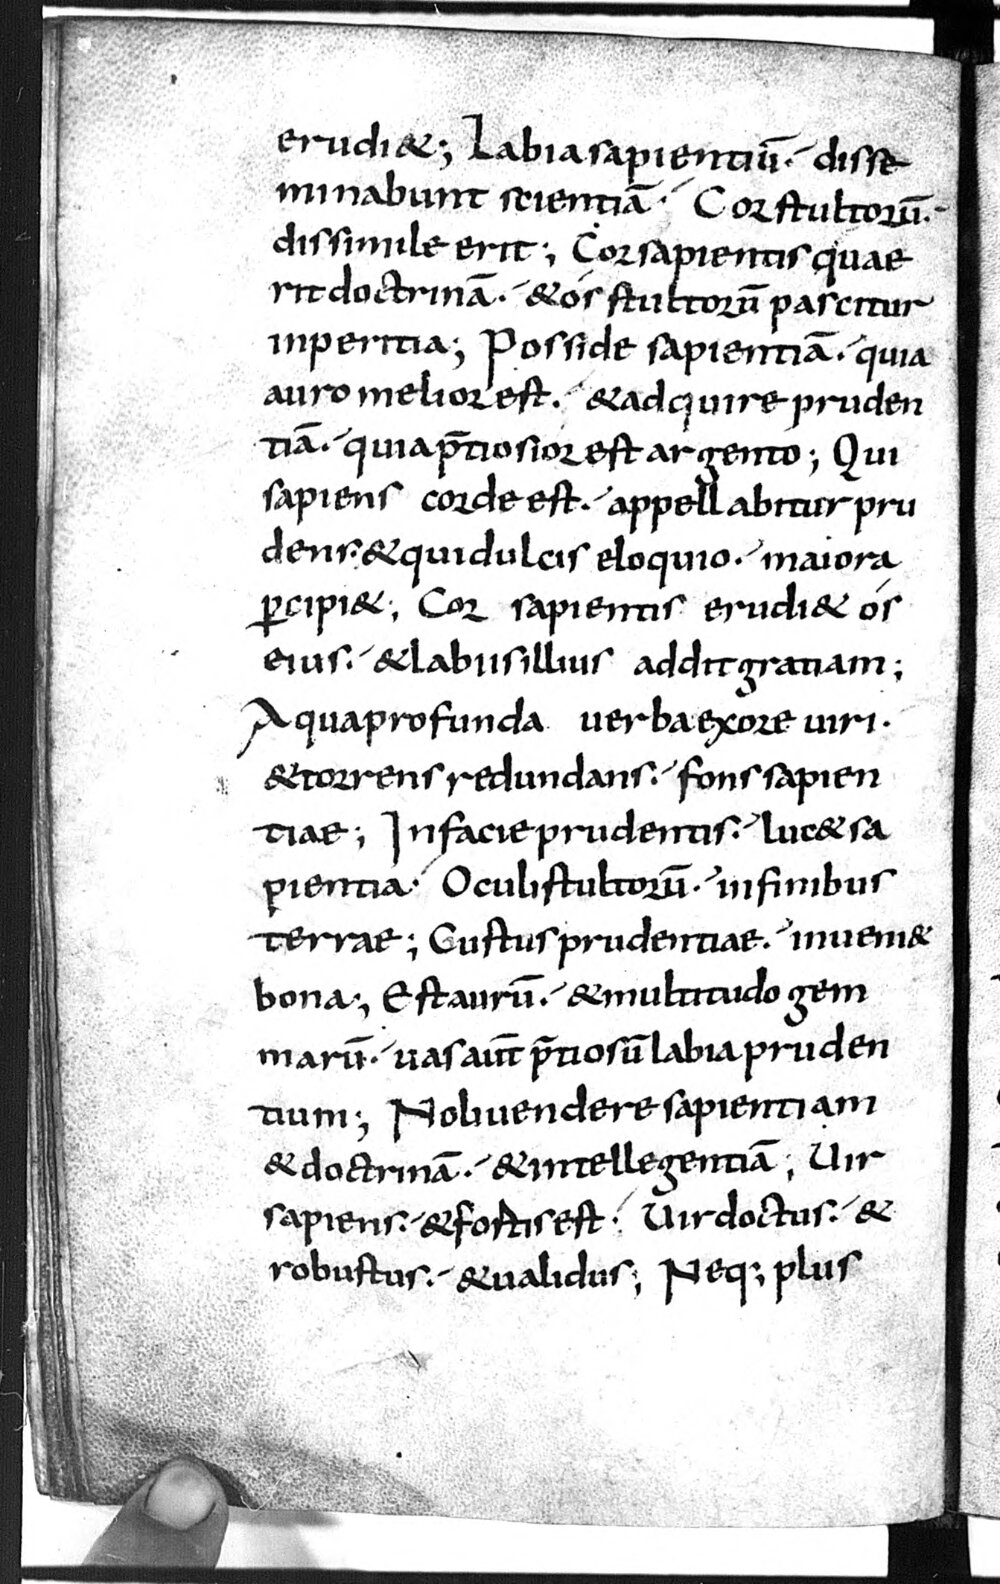 erudi&; Labia sapientiū· disse
minabunt scientiā· Cor stultorū·
dissimile erit; Cor sapientis quae
rit doctrinā· & ós stultorū pascitur
inperitia; Posside sapientiā· quia
auro melior est· & adquire pruden
tiā· quia p̄tiosior est argento; Qui
sapiens corde est· appellabitur pru
dens· & qui dulcis eloquio· maiora
ꝑcipi&; Cor sapientis erudi& ós
eius· & labiis illius addit gratiam;
Aqua profunda uerba ex ore uiri·
& torrens redundans· fons sapien
tiae; In facie prudentis· luc& sa
pientia· Oculi stultorū· in finibus
terrae; Gustus prudentiae· inueni&
bona; Est aurū· & multitudo gem
marū· uas aut̄ p̄tiosū labia pruden
tium; Noli uendere sapientiam
& doctrinā· & intellegentiā; Uir
sapiens· & fortis est· Uir doctus· &
robustus· & ualidus; Neq; plus